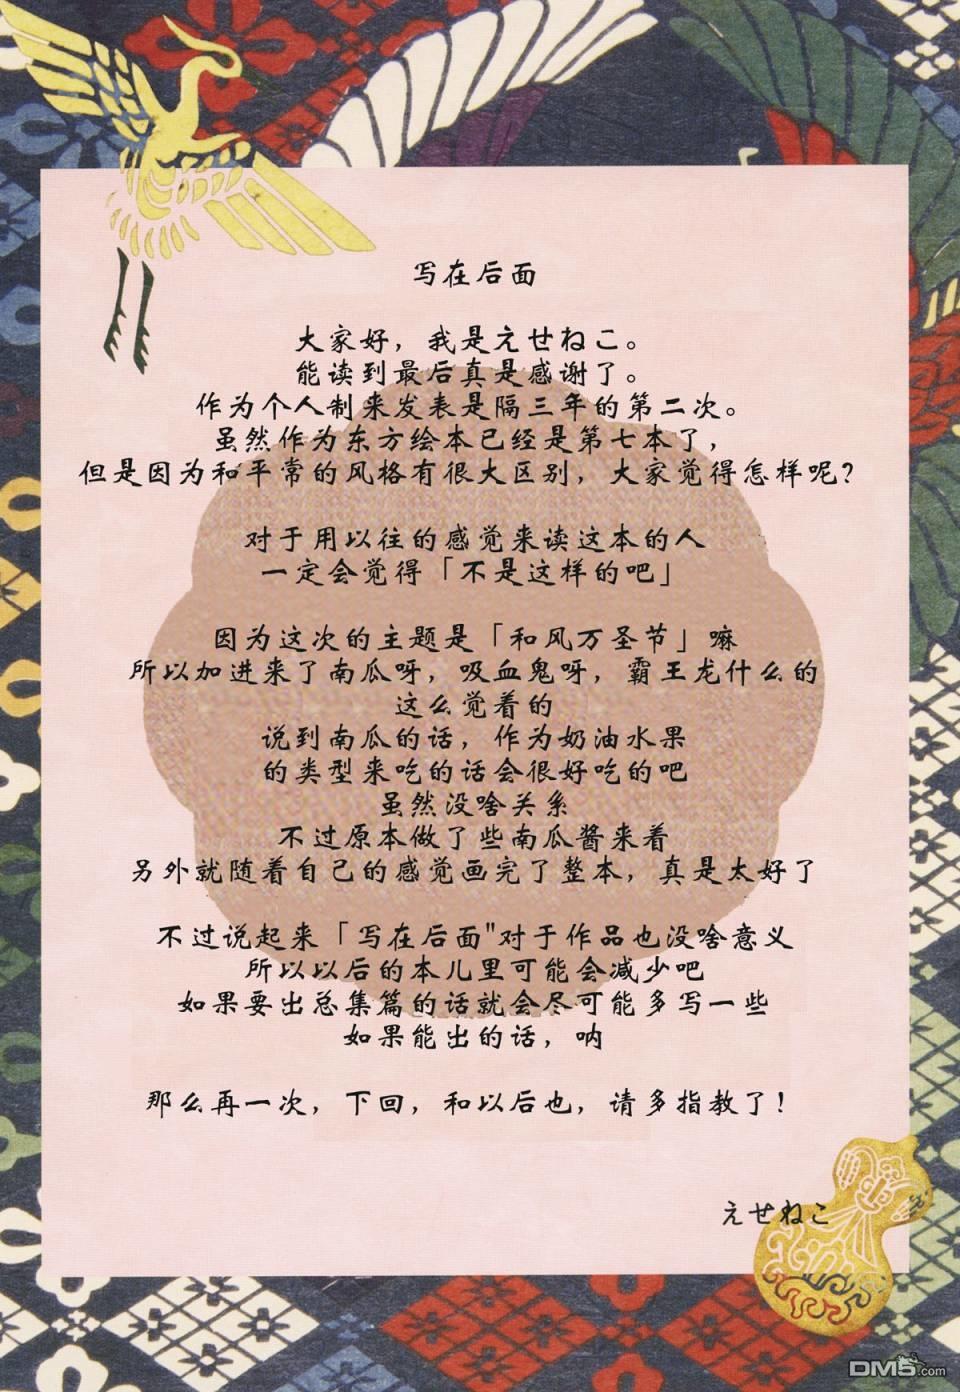 写在后面
大家好，我是えせねこ。
能读到最后真是感谢了。
作为个人制来发表是隔三年的第二次。
虽然作为东方绘本已经是第七本了，
但是因为和平常的风格有很大区别，大家觉得怎样呢？
对于用以往的感觉来读这本的人
一定会觉得「不是这样的吧」
因为这次的主题是「和风万圣节」嘛
所以加进来了南瓜呀，吸血鬼呀，霸王龙什么的
这么觉着的
说到南瓜的话，作为奶油水果
的类型来吃的话会很好吃的吧
虽然没啥关系
不过原本做了些南瓜酱来着
另外就随着自己的感觉画完了整本，真是太好了
不过说起来「写在后面"对于作品也没啥意义
所以以后的本儿里可能会减少吧
如果要出总集篇的话就会尽可能多写一些
如果能出的话，呐
那么再一次，下回，和以后也，请多指教了！
えせねこ
DM5.com